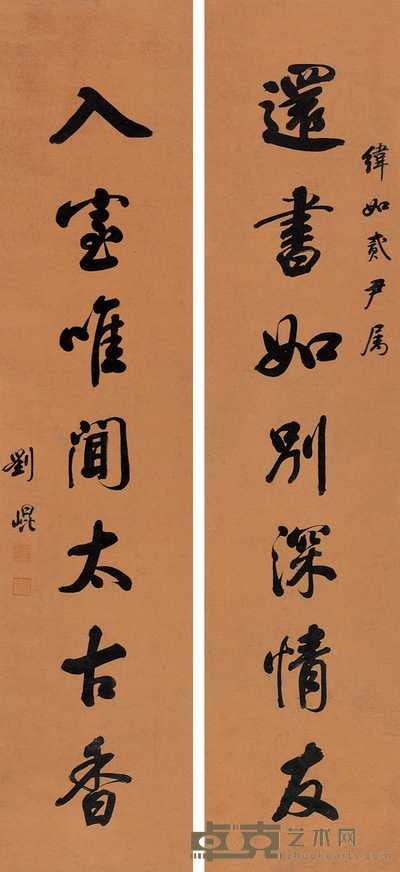 緯如貳尹属
還書如別深情友
入室唯聞太古香
劉崐
卓克艺术网